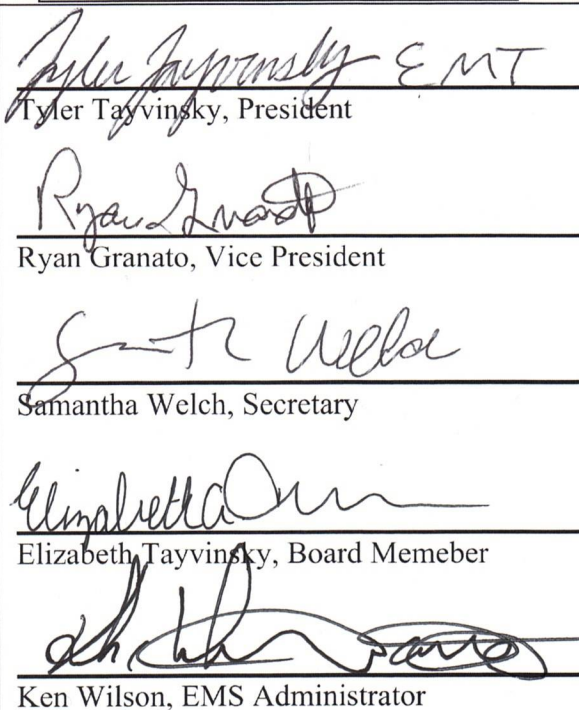 Tyler Tayvinsky EMT
Tyler Tayvinsky, President
Ryan Granato
Ryan Granato, Vice President
Welch
Samantha Welch, Secretary
Elizabeth
Elizabeth Tayvinsky, Board Memeber
Ken Wilson, EMS Administrator